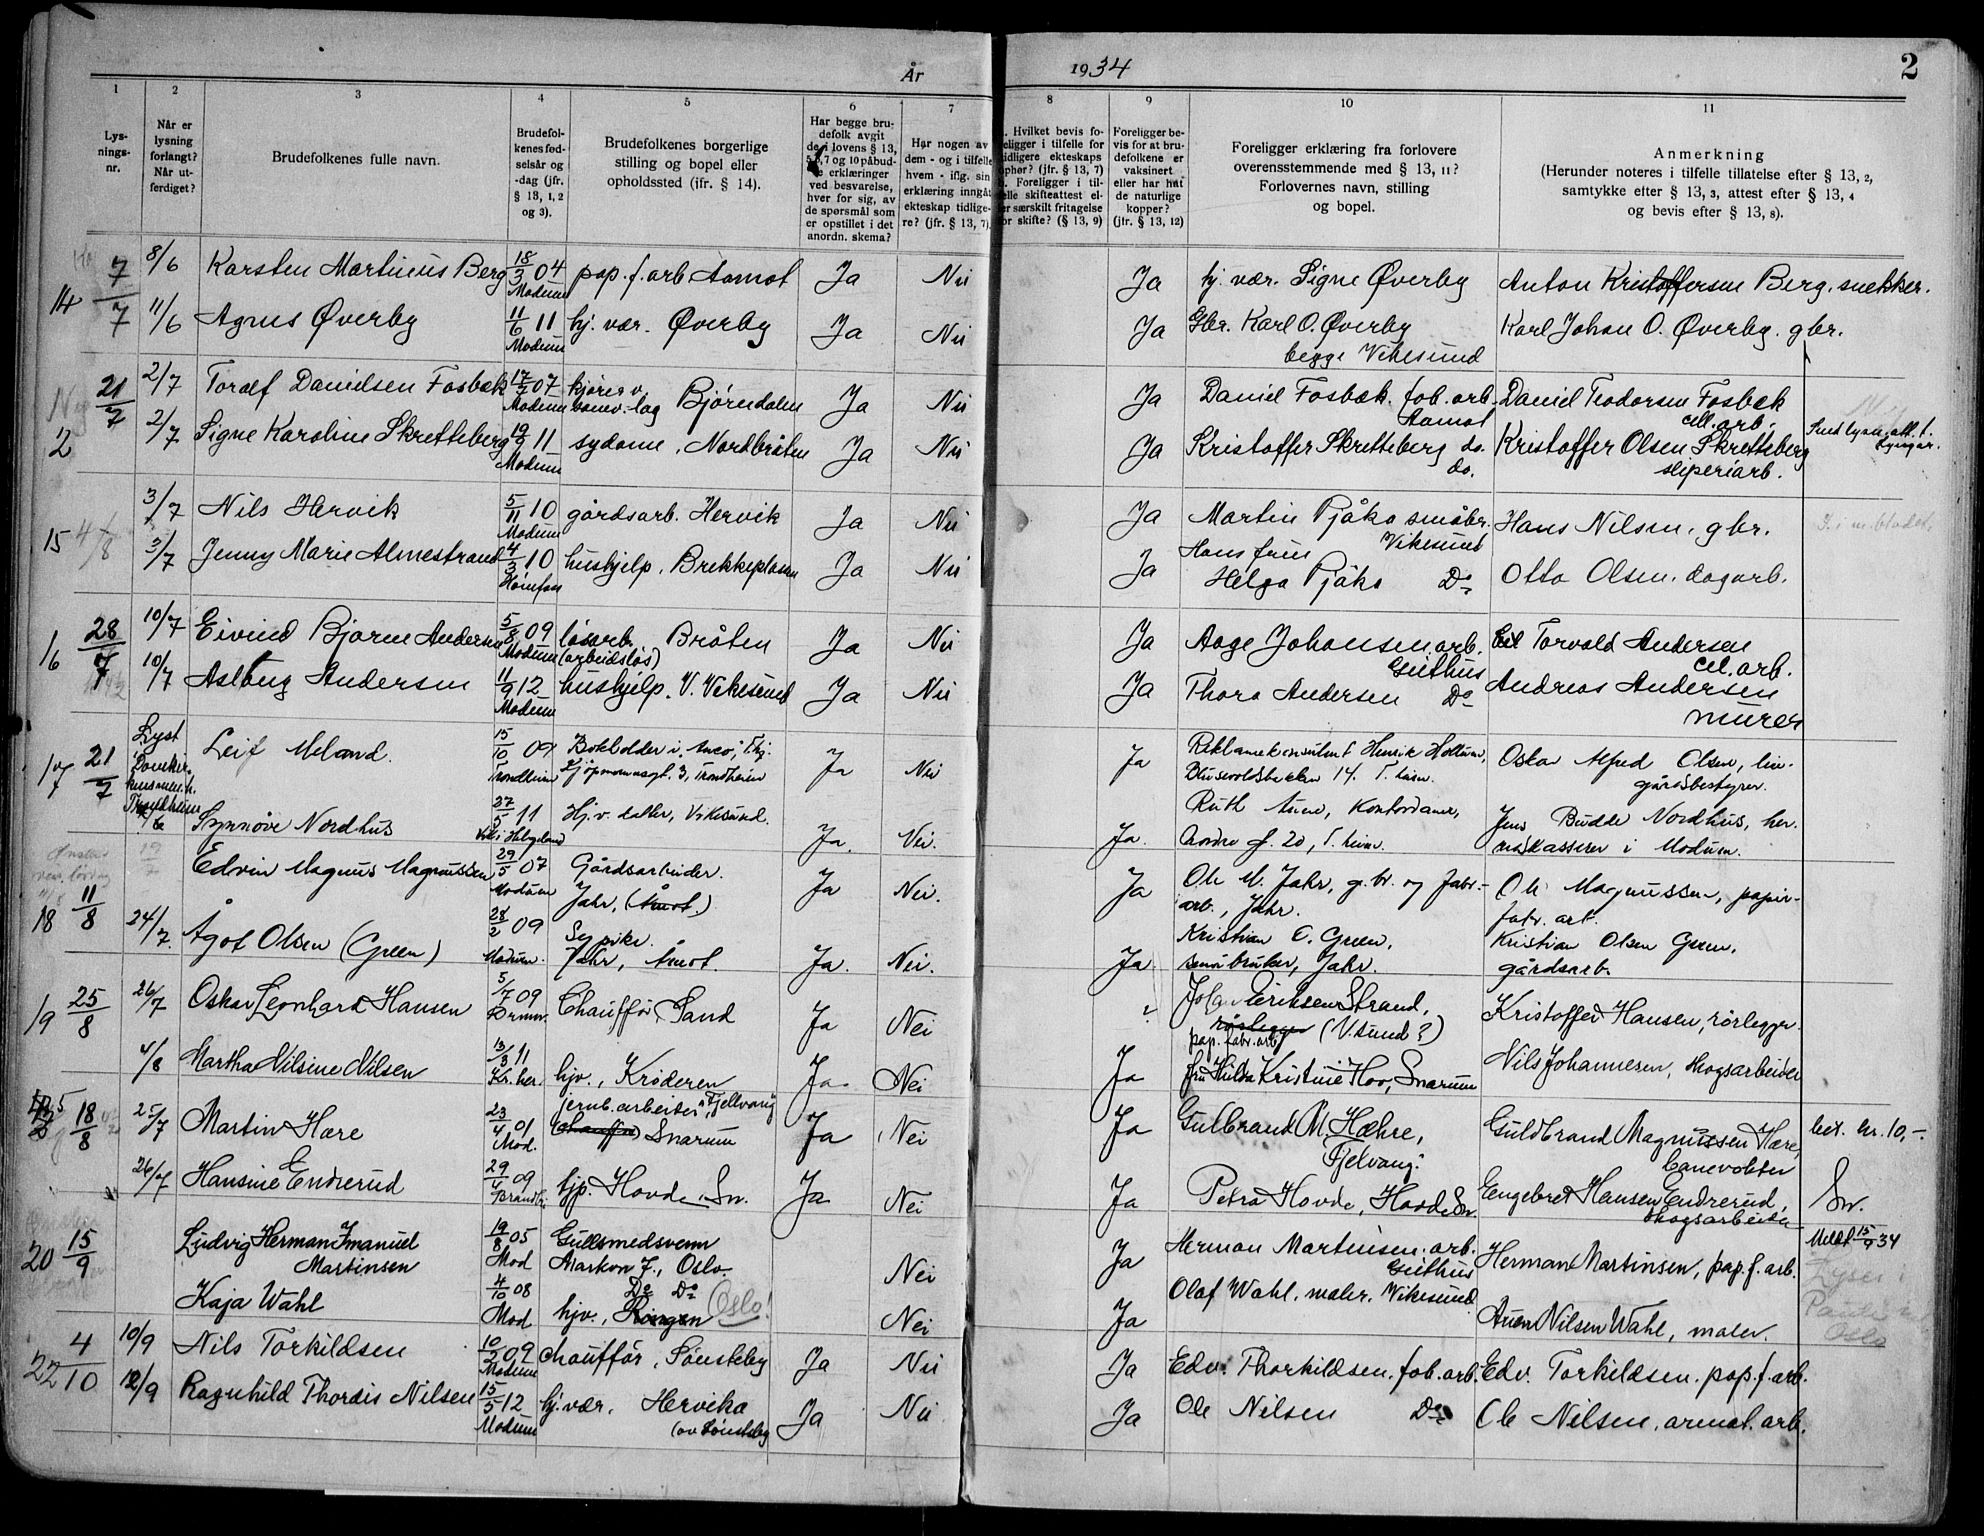 År 1934
2
1 2 3 4 5 6 7 8 9 10 11
Lys-
nings-
nr.
Når er
lysning
forlangt?
Når ut-
ferdiget?
Brudefolkenes fulle navn.
Brudefol-
kenes fød-
selsår og
-dag (jfr.
§ 13, 1, 2
og 3).
Brudefolkenes borgerlige
stilling og bopel eller
opholdssted (ifr. § 14).
Har begge bru-
defolk avgit
de i lovens § 13,
5, 6, 7 og 10 påbud-
ne erklæringer
ved besvarelse,
hver for sig, av
de spørsmål som
er opstillet i det
anordn. skema?
Har nogen av
dem - og i tilfelle
hvem - iflg. sin
erklæring inngått
ekteskap tidlige-
re? (jfr. § 13, 7).
. Hvilket bevis fo-
eligger i tilfelle for
tidligere ekteskaps
ophør? (jfr. § 13, 7)
. Foreligger i til-
felle skifteattest el-
er særskilt fritagelse
or skifte? (§ 13, 9)
Foreligger be-
vis for at bru-
defolkene er
vaksinert
eller har hat
de naturlige
kopper?
(jfr. § 13, 12)
Foreligger erklæring fra forlovere
overensstemmende med § 13, 11?
Forlovernes navn, stilling
og bopel.
Anmerkning
(Herunder noteres i tilfelle tillatelse efter § 13, 2,
samtykke efter § 13, 3, attest efter § 13, 4
og bevis efter § 13, 8).
14 7/7 8/6 Karsten Martinius Berg 18/3 04 Modum pap. f. arb Aamot Ja Nei Ja hj. vær. Signe Øverby Anton Kristoffersen Berg, snekker.
11/6 Agnes Øverby 11/6 11 Modum hj. vær. Øverby Ja Nei Ja Gbr. Karl O. Øverby Karl Johan O. Øverby. gbr.
begge Vikesund
2 21/7 2/7 Toralf Danielsen Fosbæk 17/2 07 Modum kjører v. Bjørndalen Ja Nei Ja Daniel Fosbæk. fab. arb. Daniel Teodorsen Fosbæk
Aamot cell. arb.
2/7 Signe Karoline Skretteberg 19/3 11 Modum sydame, Nordbråten Ja Nei Ja Kristoffer Skretteberg do. Kristoffer Olsen Skretteberg
do. sliperiarb.
15 4/8 3/7 Nils Hervik 5/11 10 Modum gårdsarb. Hervik Ja Nei Ja Martin Pjåka småbr. Hans Nilsen, gbr.
Vikesund
3/7 Jenny Marie Almestrand 4/3 10 Hønefoss hushjelp, Brekkeplassen Ja Nei Ja Hans frue
Helga Pjåka Do Otto Olsen. dagarb.
16 28/7 10/7 Eivind Bjarne Andersen 5/8 09 Modum løsarb. Bråten Ja Nei Ja Aage Johansen arb. Torvald Andersen
(arbeidsløs) Geithus cel. arb.
10/7 Aslaug Andersen 11/9 12 Modum hushjelp, V. Vikesund Ja Nei Ja Thora Andersen Do Andreas Andersen
murer
17 21/7 Lyst Leif Meland. 15/10 09 Trondheim Bokholder i Ja Nei Ja Reklamekonsulent Henrik Oskar Alfred Olsen,
3, Trondheim 14. T.heim. gårdsbestyrer.
Trondheim
Synnøve Nordhus 27/5 11 Hj. v. datter, Vikesund. Ja. Nei. Ja. Ruth Kontordame, Jens Budde Nordhus, her-
20, T.heim. redskasserer i Modum.
18 11/8 19/7 Edvin Magnus Magnussen 29/5 07 Modum Gårdsarbeider. Ja Nei. Ja Ole M. Jahr, g. br. og fabr.- Ole Magnussen, papir-
Jahr, (Åmot.) arb., Jahr. fabr. arb.
24/7. Ågot Olsen (Green) 28/2 09 Modum. Sypike. Ja. Nei. Ja Kristian O. Green, Kristian Olsen Green,
Jahr, Åmot. småbruker, Jahr. gårdsarb.
19 25/8 26/7 Oskar Leonhard Hansen 5/7 09 Dramm. Chauffør, Sand Ja Nei ? Johan Eriksen Strand, Kristoffer Hansen, rørlegger.
rørlegger (V.sund?)
pap. fabr. arb.
4/8 Martha Nilsine Nilsen 13/3 11 Kr.her. hjv., Krøderen Ja. Nei Ja fru Hilda Kristine Hov, Snarum Nils Johannesen, skogsarbeider
18/8 25/7 Martin Hære 23/4 01 Mod. jernb. arbeider, "Fjellvang" Ja Nei Ja Gulbrand M. Hæhre, Guldbrand Magnussen Hære, bet. kr. 10,-.
Chauffør Snarum "Fjelvang". banevokter
26/7 Hansine Endrerud 29/4 09 hjp. Hovde, Sn. Ja Nei Ja Petra Hovde, Hovde Sn Engebret Hansen Endrerud, Sn.
skogsarbeider
20 15/9 Ludvig Herman Imanuel 19/8 05 Mod Gullsmedsvenn Nei Ja Herman Martinsen. arb. Herman Martinsen, pap. f. arb. Meldt 15/9 34
Martinsen Markvn 7., Oslo. Geithus
Kaja Wahl 4/10 08 Mod Do Do
hjv., Ringen (Oslo!) Nei Ja Olaf Wahl. maler. Vikesund Nilsen Wahl, maler. Oslo
22 4/10 10/9 Nils Torkildsen 10/2 09 Modum chauffør, Sønsteby Ja Nei Ja Edv. Thorkildsen. fab. arb. Edv. Torkildsen. pap. f. arb.
12/9 Ragnhild Thordis Nilsen 15/5 12 Modum hj. vær. Hervika Ja Nei Ja Ole Nilsen Do Ole Nilsen, armat. arb.
(ov Sønsteby